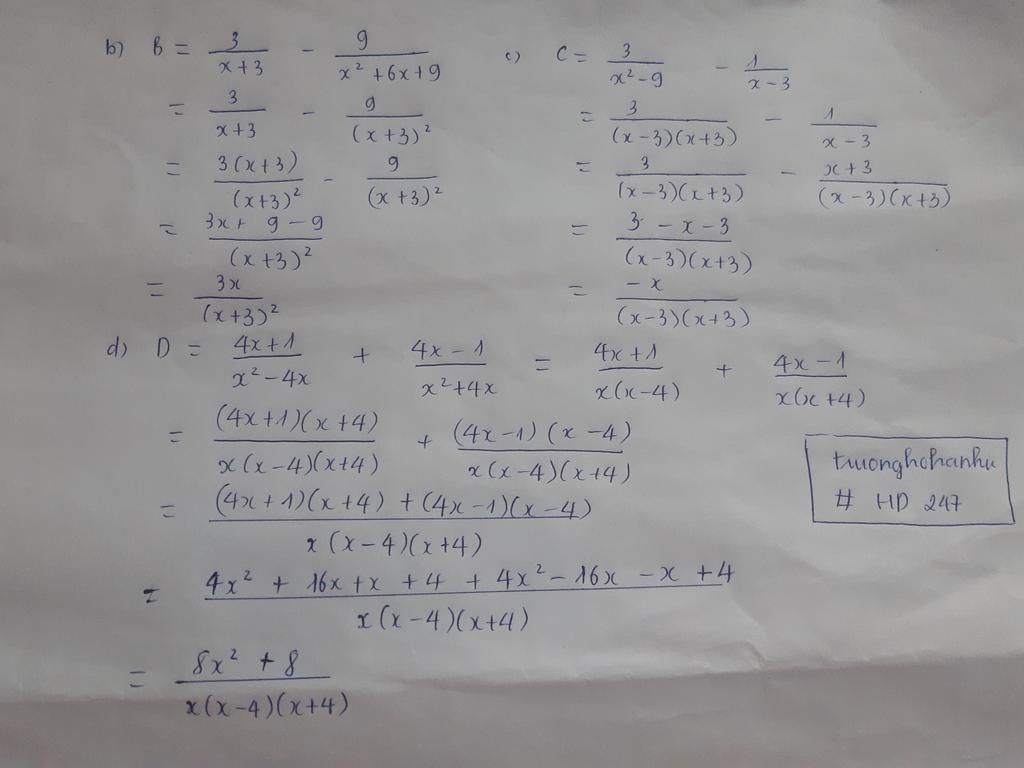 b) B = 3/(x+3) - 9/(x² + 6x + 9)
= 3/(x+3) - 9/(x+3)²
= 3(x+3)/(x+3)² - 9/(x+3)²
= (3x + 9 - 9)/(x+3)²
= 3x/(x+3)²
c) C = 3/(x² - 9) - 1/(x-3)
= 3/((x-3)(x+3)) - 1/(x-3)
= 3/((x-3)(x+3)) - (x+3)/((x-3)(x+3))
= (3 - x - 3)/((x-3)(x+3))
= -x/((x-3)(x+3))
d) D = (4x+1)/(x² - 4x) + (4x-1)/(x² + 4x) = (4x+1)/(x(x-4)) + (4x-1)/(x(x+4))
= (4x+1)(x+4)/(x(x-4)(x+4)) + (4x-1)(x-4)/(x(x-4)(x+4))
= ((4x+1)(x+4) + (4x-1)(x-4))/(x(x-4)(x+4))
= (4x² + 16x + x + 4 + 4x² - 16x - x + 4)/(x(x-4)(x+4))
= (8x² + 8)/(x(x-4)(x+4))
truonghohanhu
# HD 247